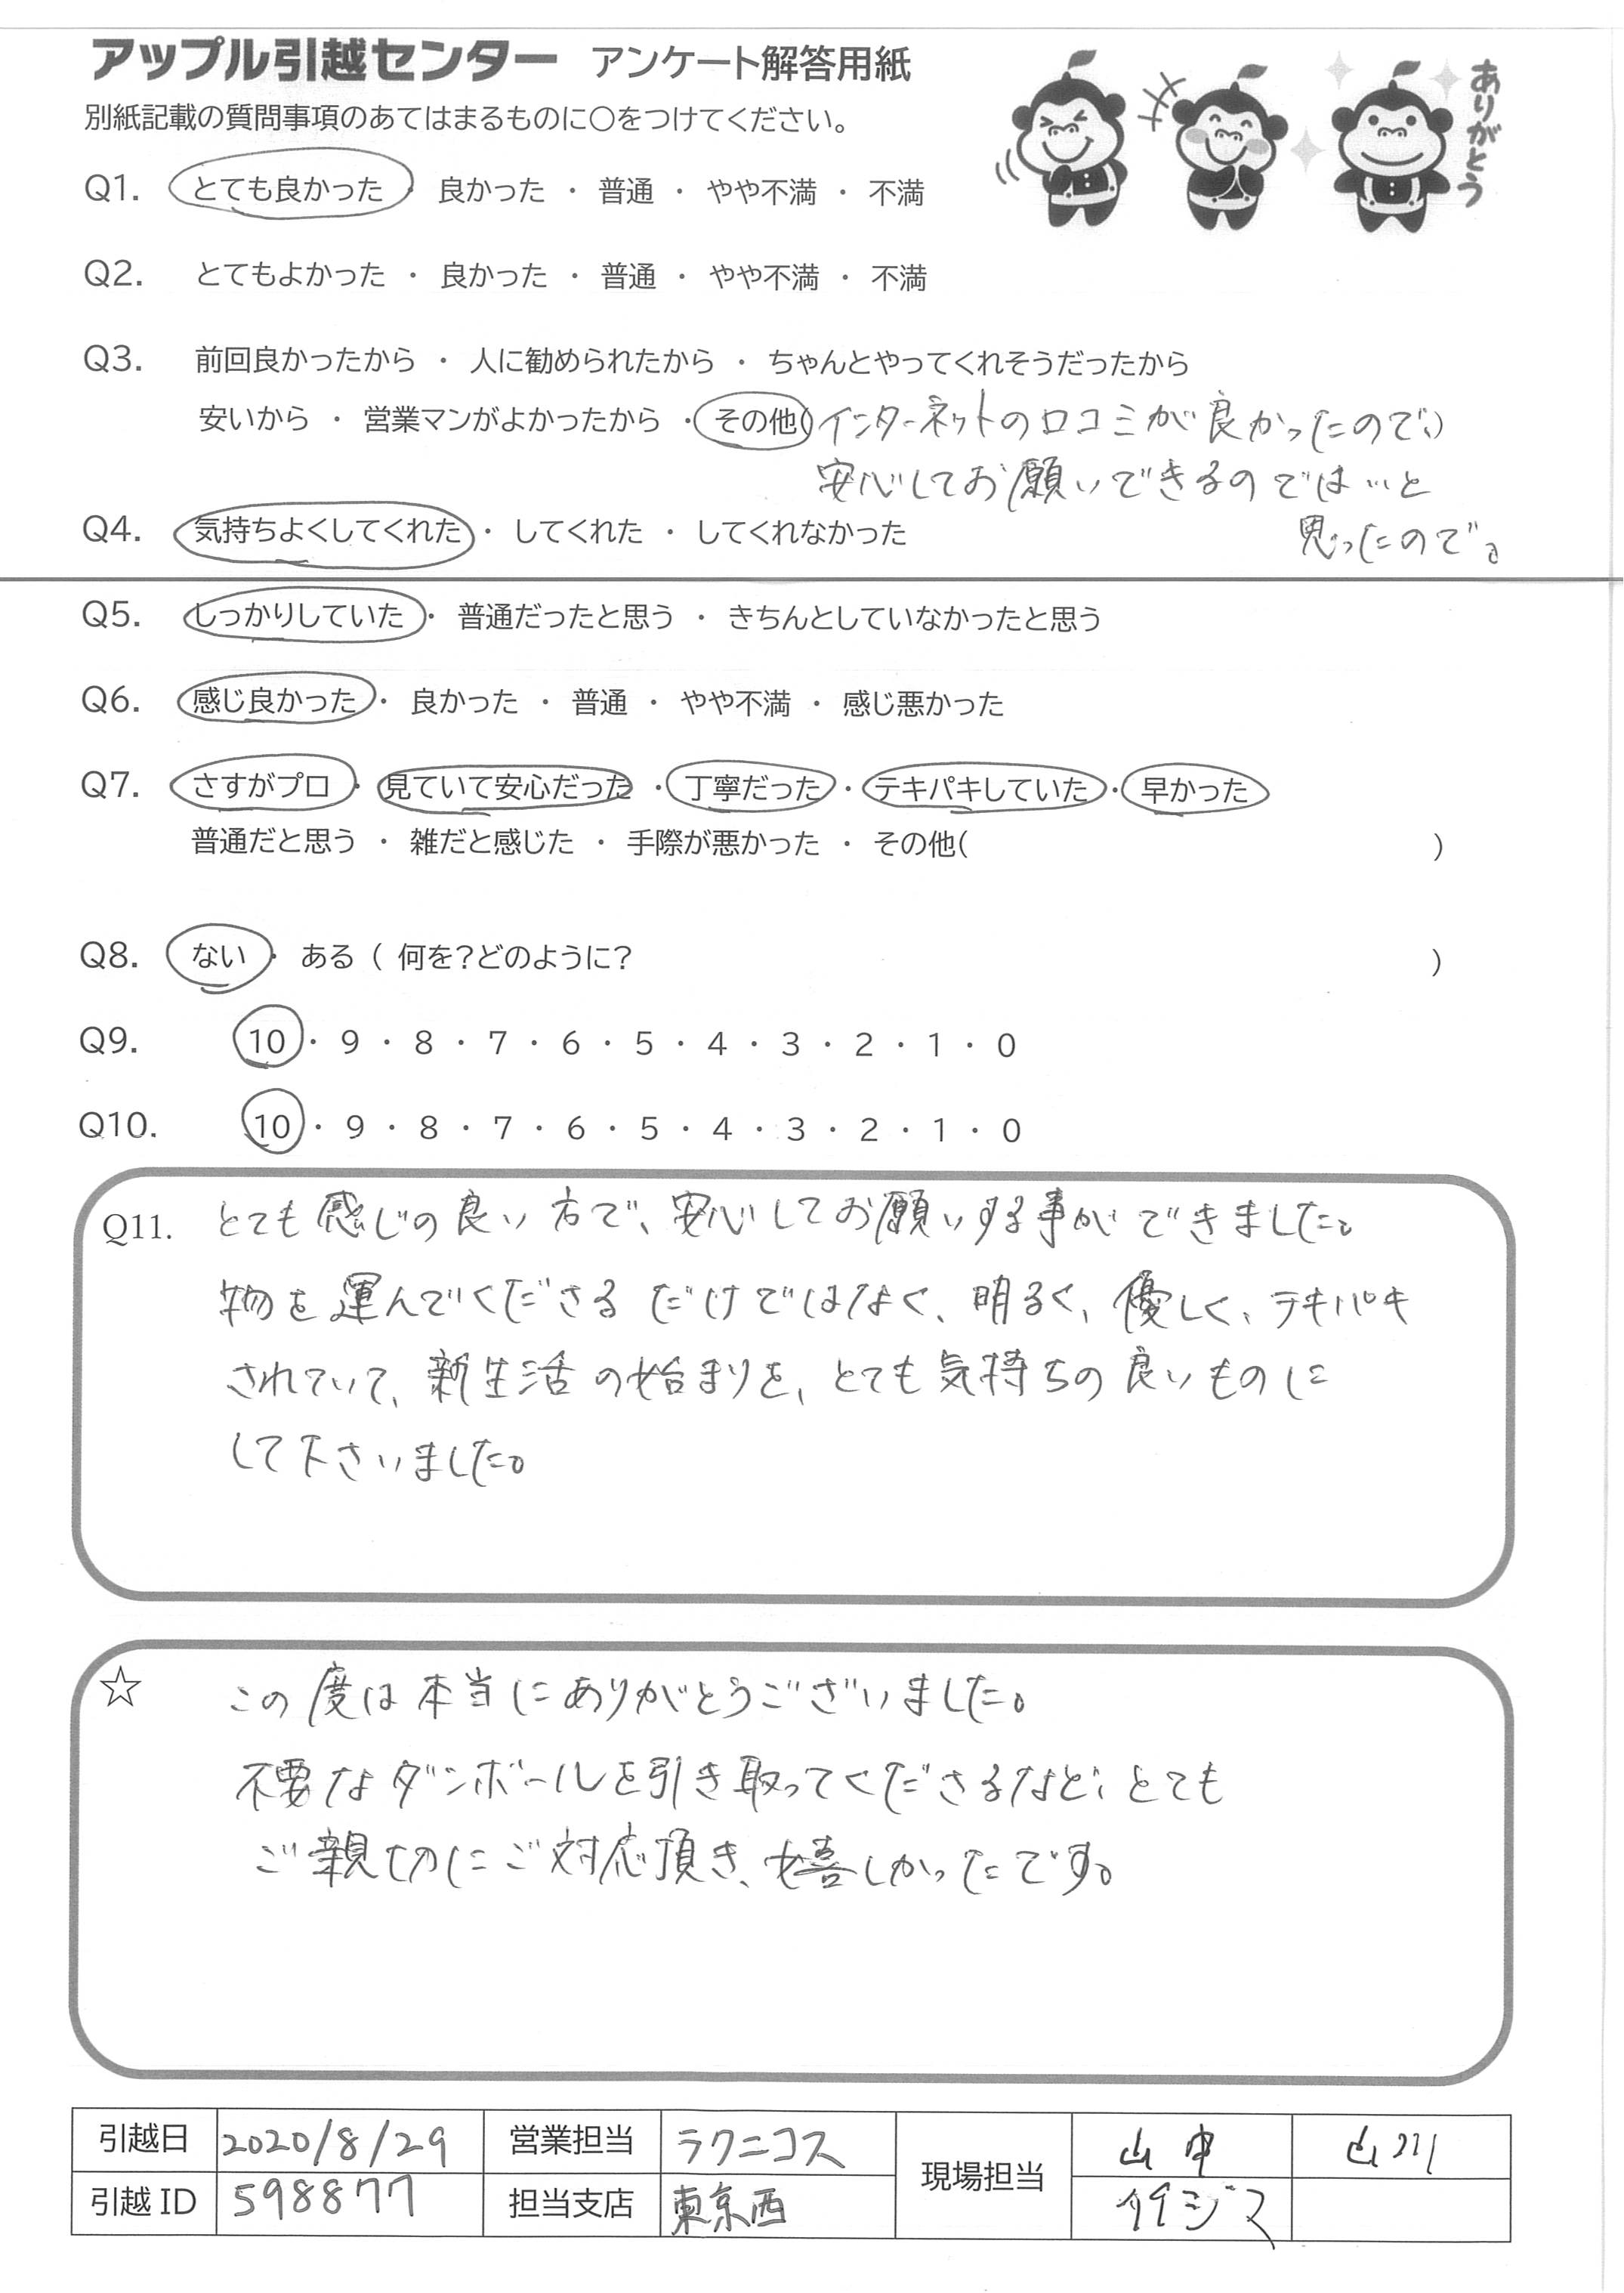 アップル引越センター アンケート解答用紙
ありがとう
別紙記載の質問事項のあてはまるものに○をつけてください。
Q1. とても良かった ・ 良かった ・ 普通 ・ やや不満 ・ 不満
Q2. とてもよかった ・ 良かった ・ 普通 ・ やや不満 ・ 不満
Q3. 前回良かったから ・ 人に勧められたから ・ ちゃんとやってくれそうだったから
安いから ・ 営業マンがよかったから ・ その他( インターネットの口コミが良かったので、)
安心してお願いできるのでは…と
思ったので。
Q4. 気持ちよくしてくれた ・ してくれた ・ してくれなかった
Q5. しっかりしていた ・ 普通だったと思う ・ きちんとしていなかったと思う
Q6. 感じ良かった ・ 良かった ・ 普通 ・ やや不満 ・ 感じ悪かった
Q7. さすがプロ ・ 見ていて安心だった ・ 丁寧だった ・ テキパキしていた ・ 早かった
普通だと思う ・ 雑だと感じた ・ 手際が悪かった ・ その他( )
Q8. ない ・ ある ( 何を?どのように? )
Q9. 10 ・ 9 ・ 8 ・ 7 ・ 6 ・ 5 ・ 4 ・ 3 ・ 2 ・ 1 ・ 0
Q10. 10 ・ 9 ・ 8 ・ 7 ・ 6 ・ 5 ・ 4 ・ 3 ・ 2 ・ 1 ・ 0
Q11. とても感じの良い方で、安心してお願いする事ができました。
物を運んでくださるだけではなく、明るく、優しく、テキパキ
されていて、新生活の始まりを、とても気持ちの良いものに
して下さいました。
☆ この度は本当にありがとうございました。
不要なダンボールを引き取ってくださるなど、とても
ご親切にご対応頂き、嬉しかったです。
引越日 2020/8/29 営業担当 ラクニコス 現場担当 山中 山川
引越ID 598877 担当支店 東京西